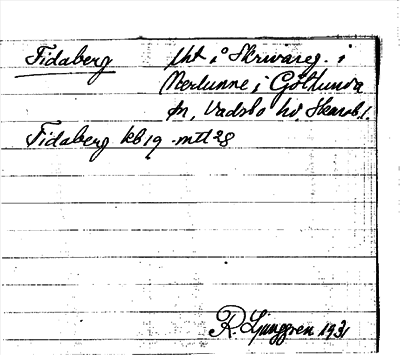 Fidaberg lht i Skrivareg. i
Nerlunne i Götlunda
sn, Vadsbo hd. Skarab. l.
Fidaberg kb 19 mtl 28
R. Ljunggren 1931